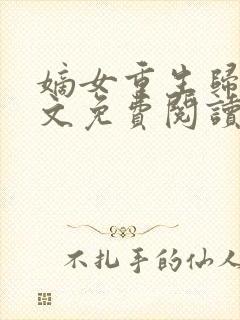 嫡女重生歸
文免費閱讀
不扎手的仙人